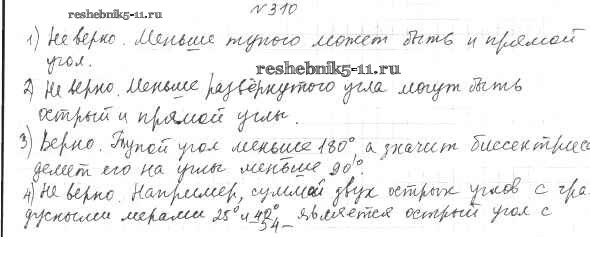 reshebnik5-11.ru
№310
1) Не верно. Меньше тупого может быть и прямой
угол.
reshebnik5-11.ru
2) Не верно. Меньше развёрнутого угла могут быть
острый и прямой углы.
3) Верно. Тупой угол меньше 180°, а значит биссектриса
делет его на углы меньше 90°.
4) Не верно. Например, суммой двух острых углов с гра-
дусными мерами 25° и 42° является острый угол с
54